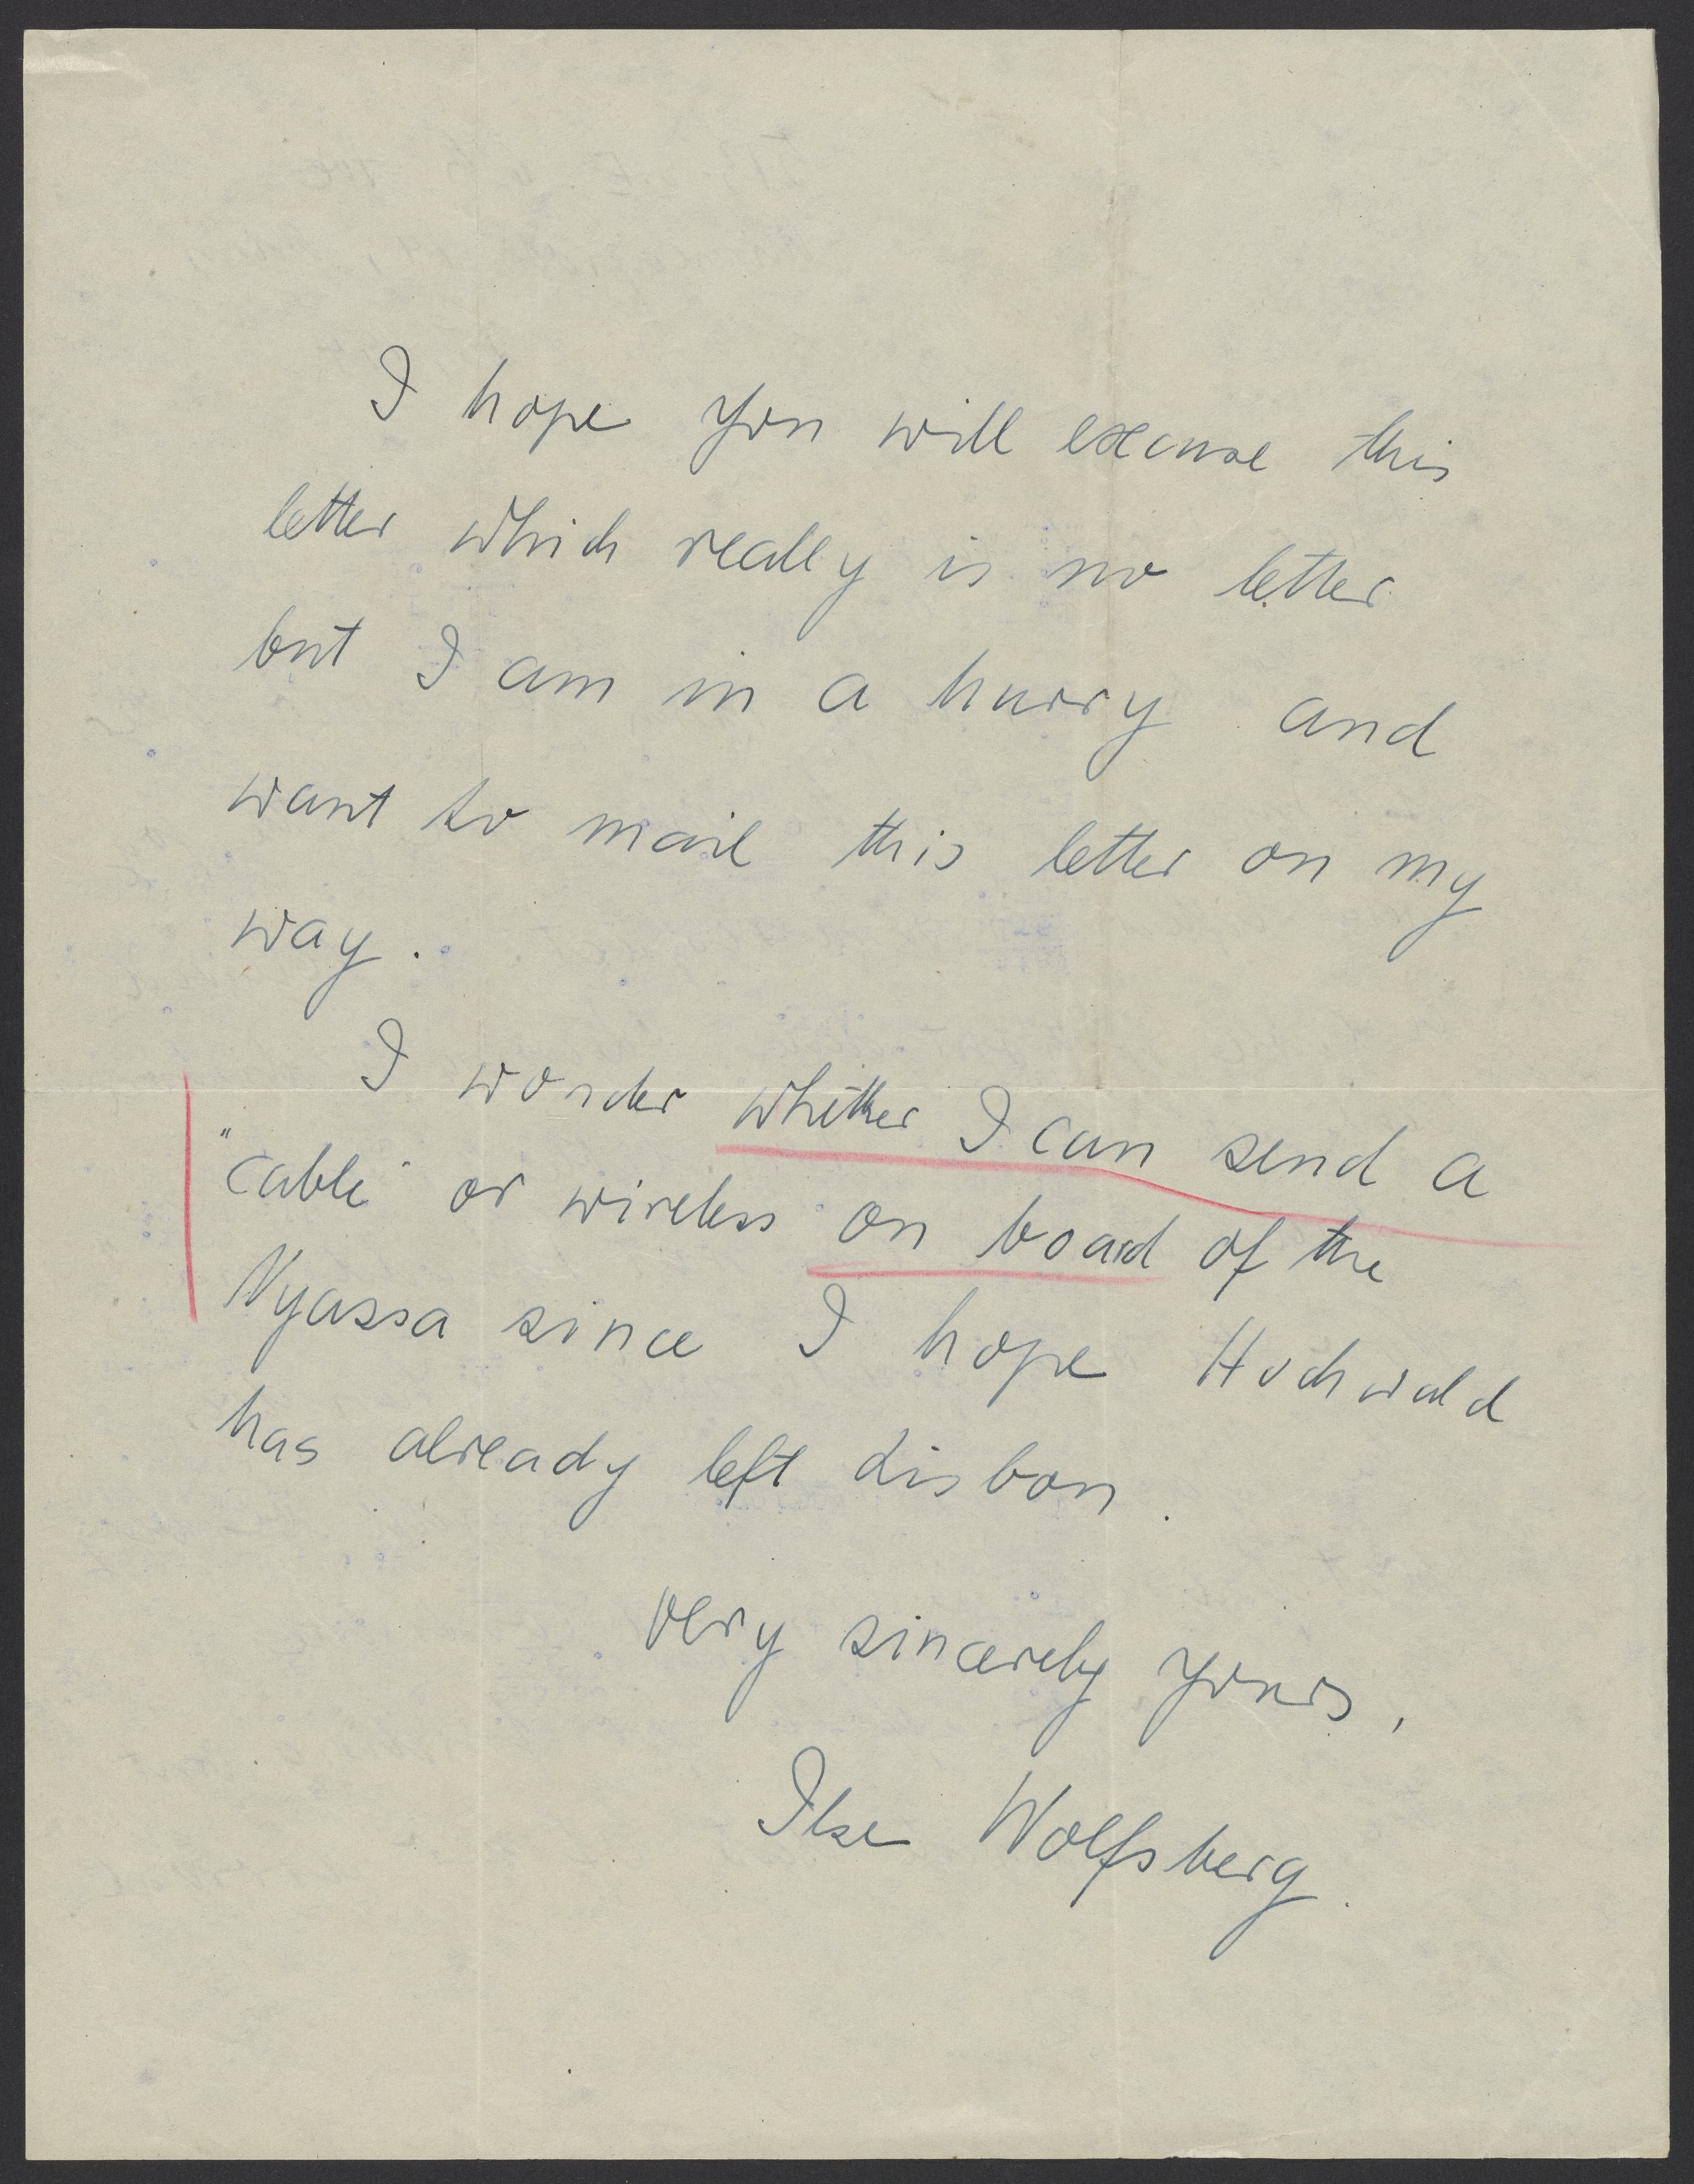 I hope you will excuse this
letter which really is no letter
but I am in a hurry and
want to mail this letter on my
way.
I wonder whether I can send a
"cable" or wireless on board of the
Nyassa since I hope Hochwald
has already left Lisbon.
very sincerely yours,
Ilse Wolfsberg.